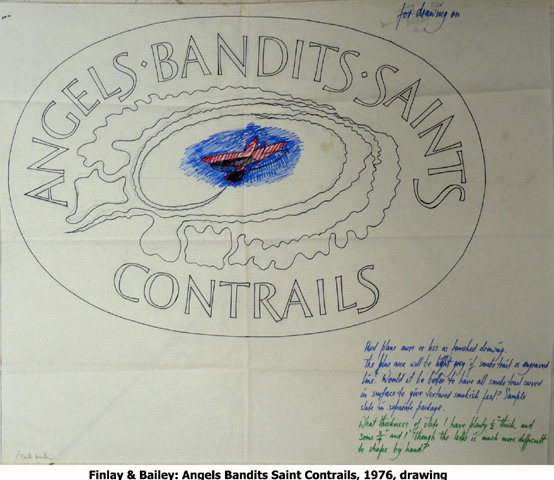 for drawing on
ANGELS · BANDITS · SAINTS
CONTRAILS
Red plane more or less as finished drawing.
The blue area will be light grey if smoke trail is engraved
line. Would it be better to have all smoke trail carved
in surface to give textured smokish feel? Sample
slate in separate package.
What thickness of slate? I have plenty ½" thick and
some ¾" and 1" though the latter is much more difficult
to shape by hand!
Finlay & Bailey: Angels Bandits Saint Contrails, 1976, drawing